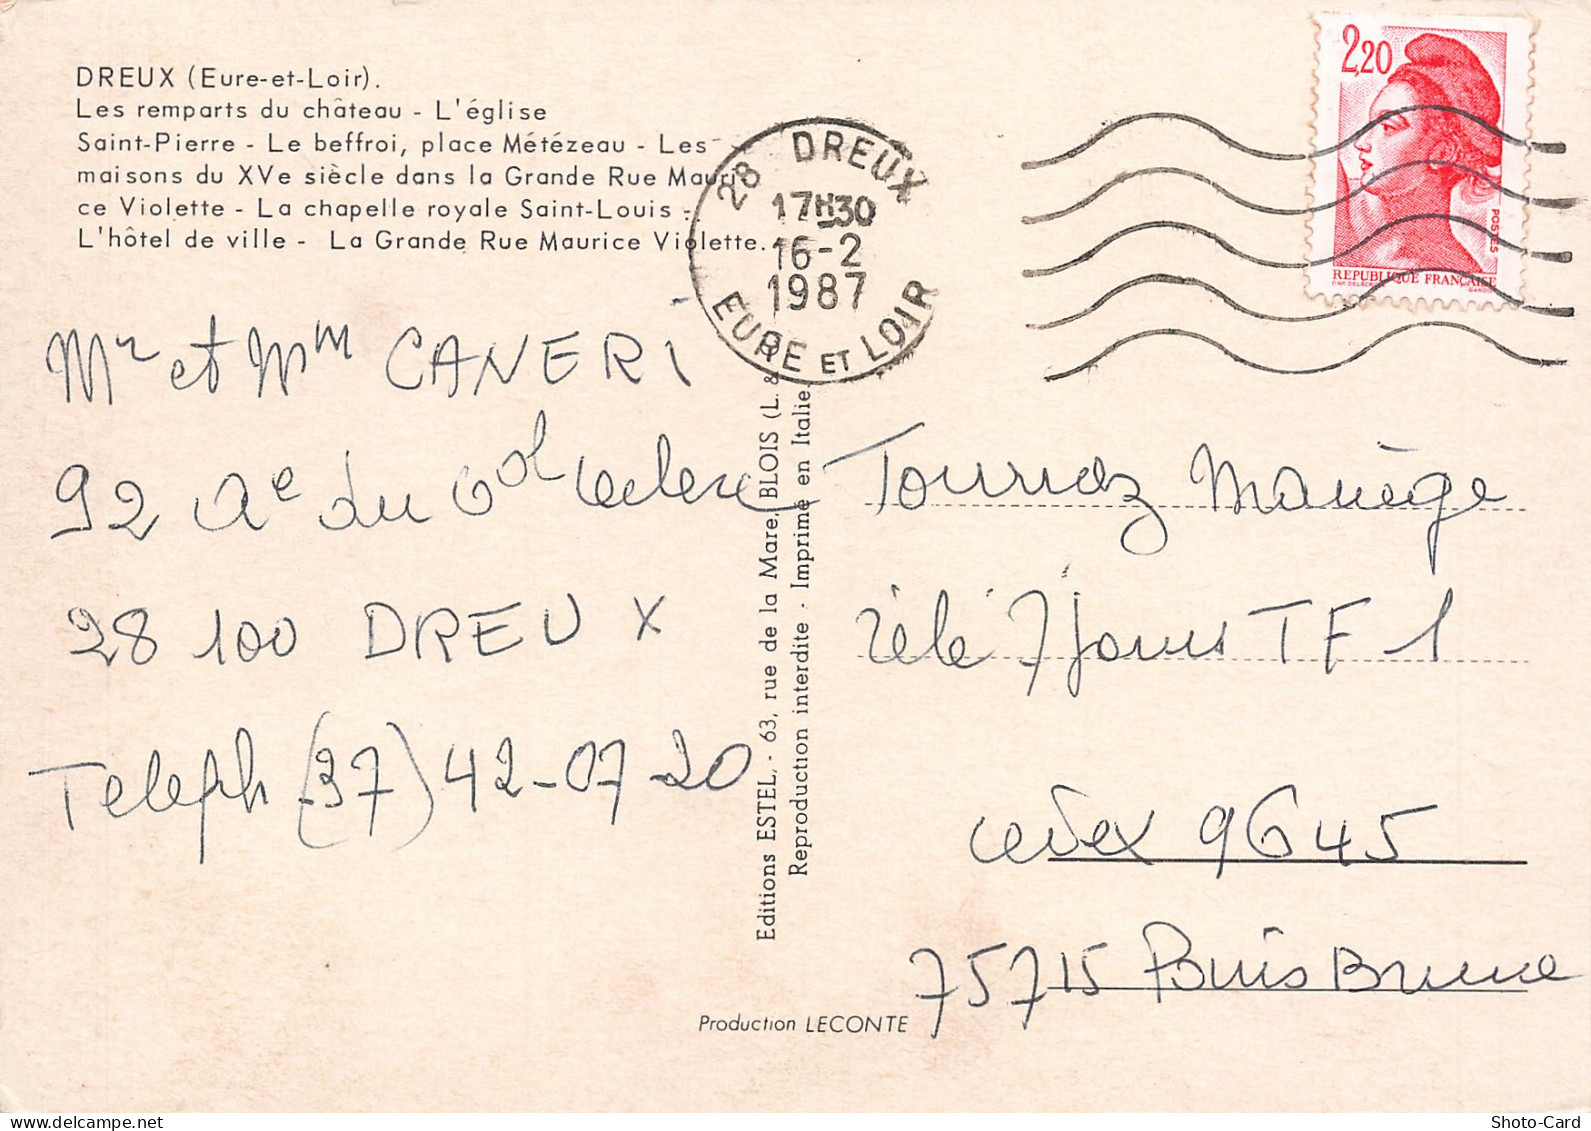 DREUX (Eure-et-Loir).
Les remparts du château - L'église
Saint-Pierre - Le beffroi, place Métézeau - Les
maisons du XVe siècle dans la Grande Rue Mauri
ce Violette - La chapelle royale Saint-Louis -
L'hôtel de ville - La Grande Rue Maurice Violette.
28 DREUX
17H30
16-2
1987
EURE ET LOIR
2,20
POSTES
REPUBLIQUE FRANÇAISE
Mr et Mm CANERI
92 Ae du Gol Leclerc
28 100 DREUX
Teleph (37) 42-07-20
Editions ESTEL, - 63, rue de la Mare, BLOIS (L. &
Reproduction interdite - Imprimé en Italie.
Tournez Manège
Télé 7 Jours TF 1
cedex 9645
75715 Paris Brune
Production LECONTE
Shoto-Card
www.delcampe.net